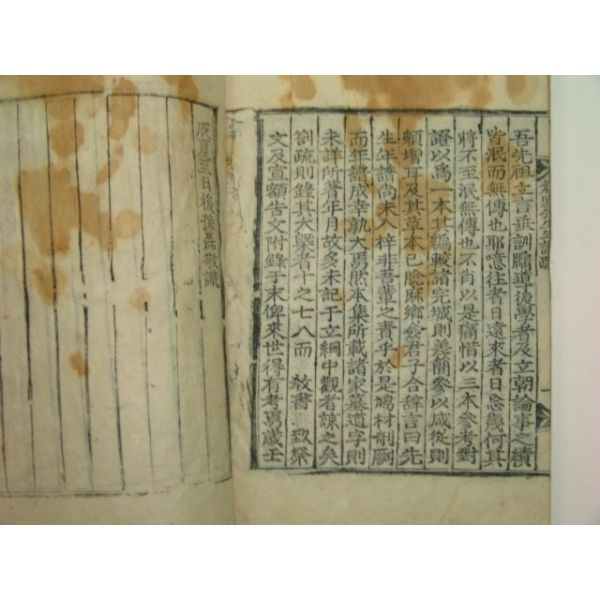 吾先祖立言垂訓牖導後學者及立朝論事之績
皆泯而無傳也耶噫往者日遠來者日忘幾何其
將不至泯無傳也不肖以是痛惜以三本參考對
證以爲一本其編較諸完城則差簡參以咸從則
頗增耳及其草本已脫麻鄉僉君子合辭言曰先
生年譜尚未入梓非吾輩之責乎於是鳩材剞劂
而年譜成幸孰大焉然本集所載諸家墓道字則
未詳所著年月故多未記于立綱中觀者諒之矣
劄疏則錄其大槩者十之七八而 敎書 致祭
文及宣額告文附錄于末俾來世得有考焉歲壬
日後孫 敬識